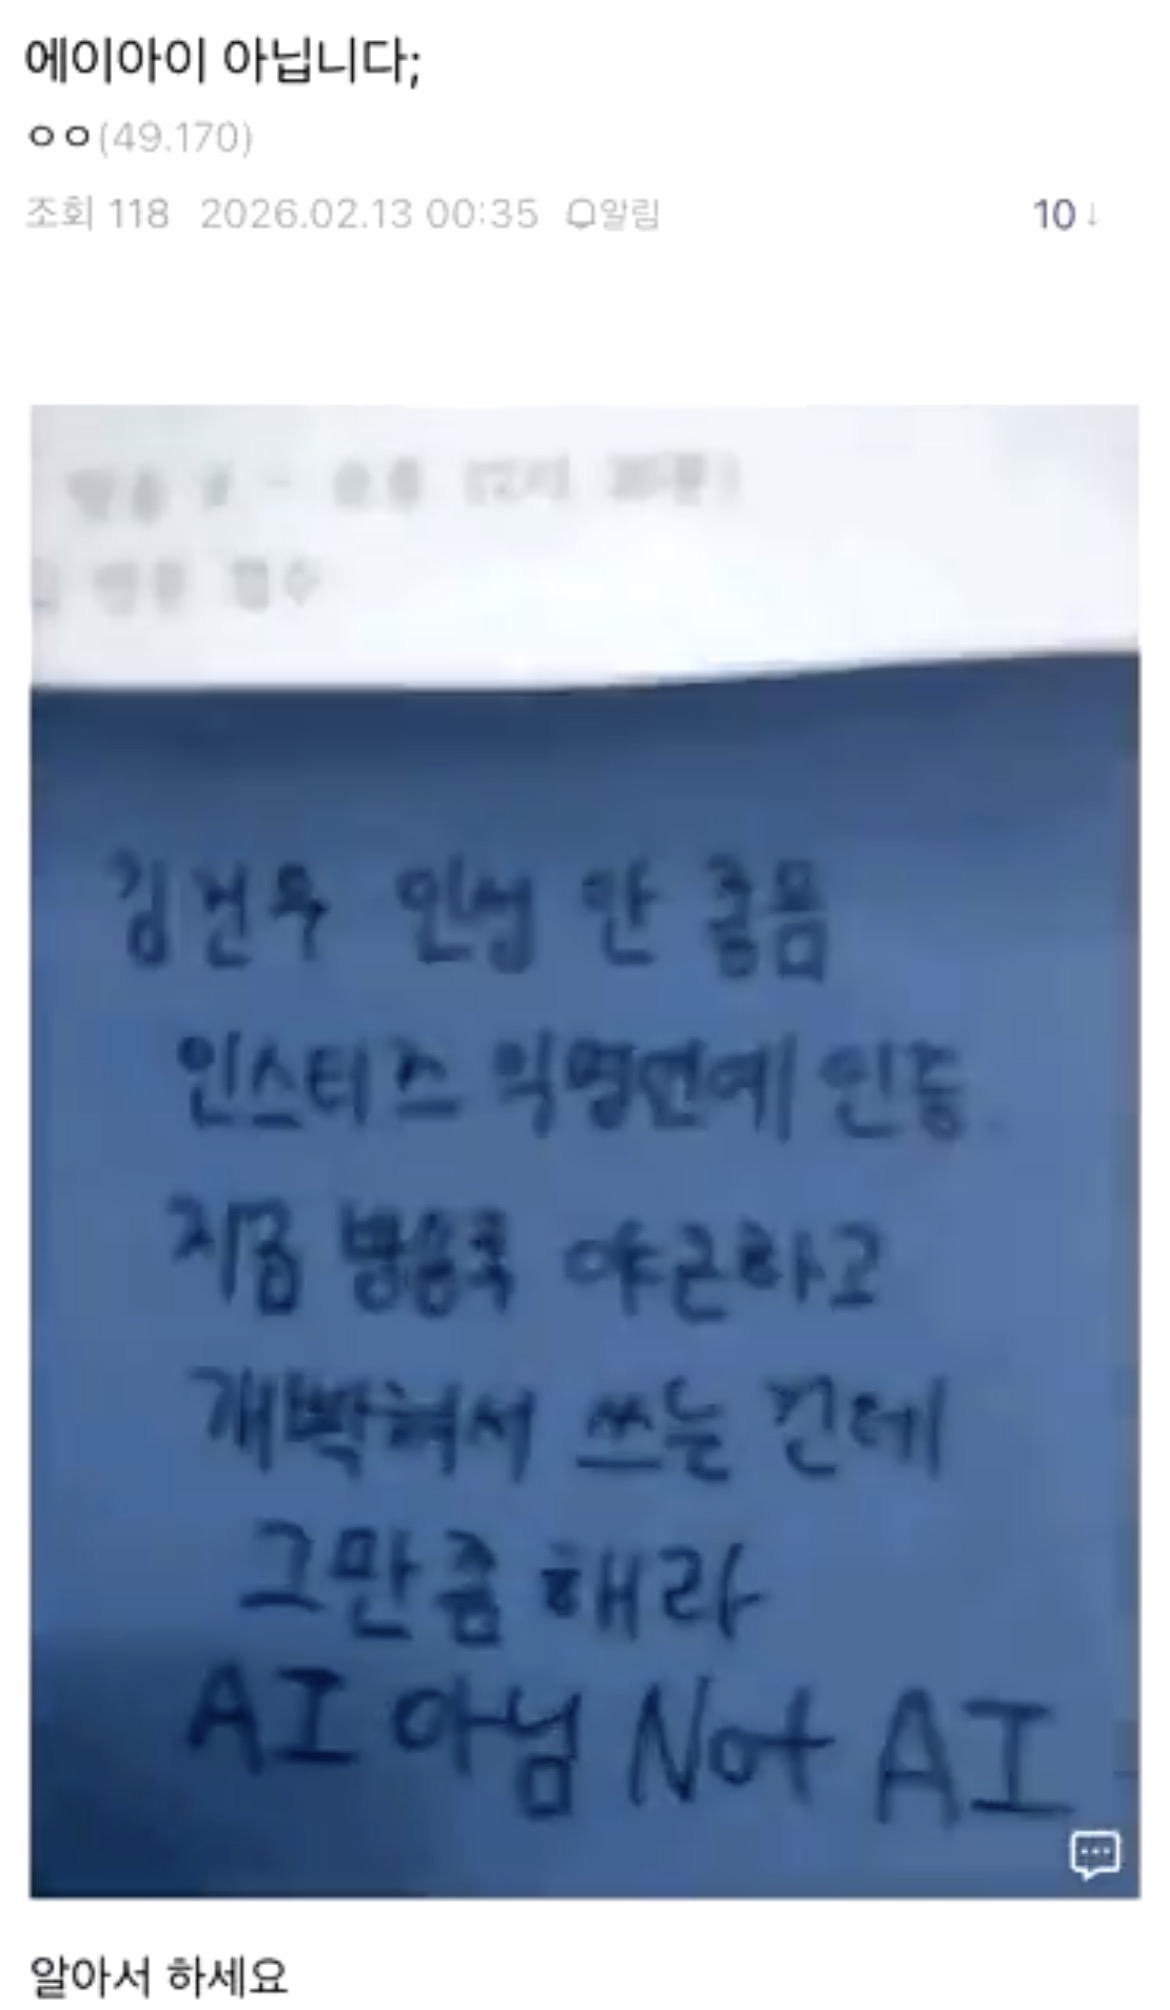 에이아이 아닙니다;
ㅇㅇ(49.170)
조회 118 2026.02.13 00:35 알림 10↓
김건우 인성 안 좋음
인스티즈 익명연예 인증
지금 방송국 야근하고
개빡쳐서 쓰는 건데
그만좀 해라
AI 아님 Not AI
알아서 하세요